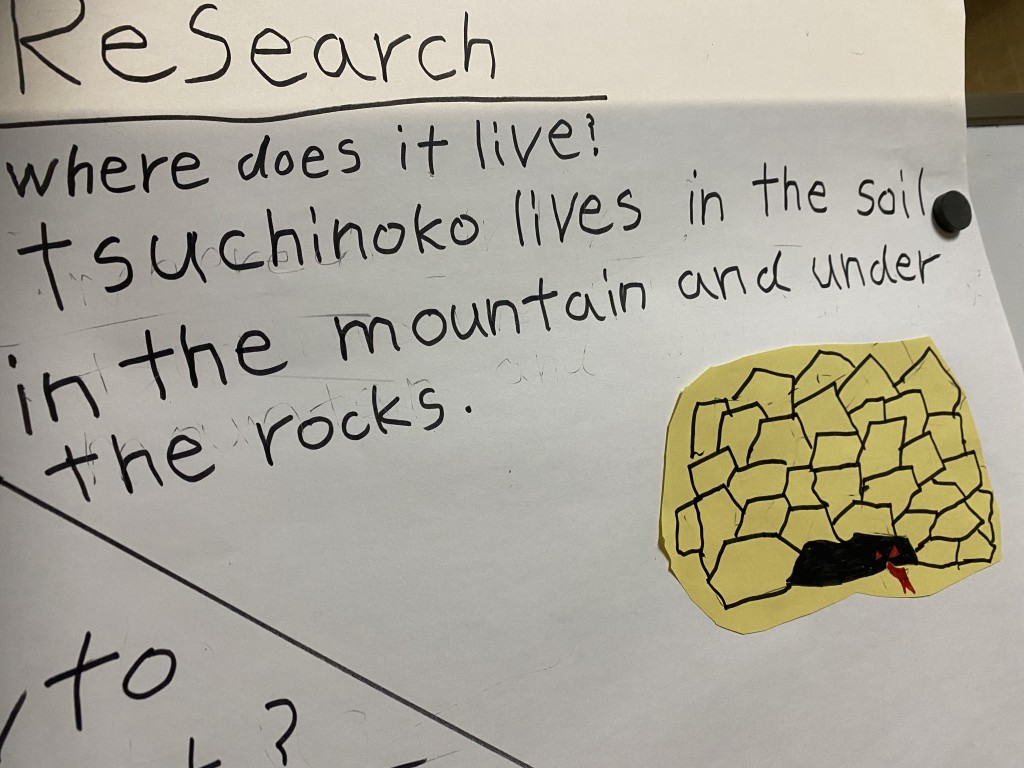 Research
where does it live?
tsuchinoko lives in the soil
in the mountain and under
the rocks.
to
?